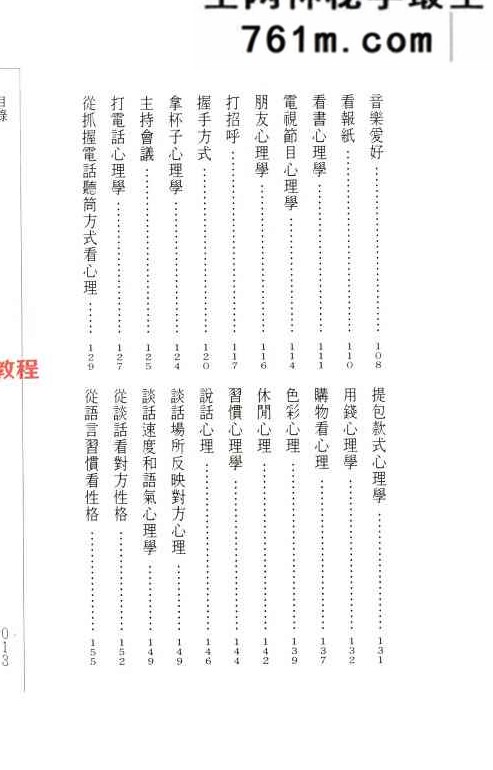 761m.com
目錄
音樂愛好 108
看報紙 110
看書心理學 111
電視節目心理學 114
朋友心理學 116
打招呼 117
握手方式 120
拿杯子心理學 124
主持會議 125
打電話心理學 127
從抓握電話聽筒方式看心理 129
提包款式心理學 131
用錢心理學 132
購物看心理 137
色彩心理 139
休閒心理 142
習慣心理學 144
說話心理 146
談話場所反映對方心理 149
談話速度和語氣心理學 149
從談話看對方性格 152
從語言習慣看性格 155
教程
013